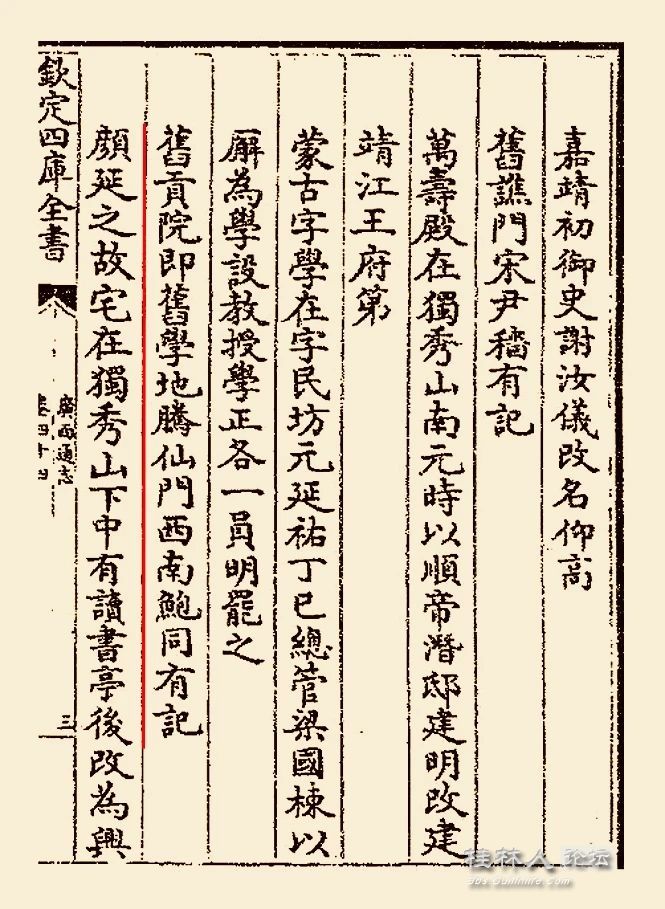 嘉靖初御史謝汝儀改名仰高
舊譙門宋尹穡有記
萬壽殿在獨秀山南元時以順帝潛邸建明改建
靖江王府第
蒙古字學在字民坊元延祐丁巳總管梁國棟以
廨為學設教授學正各一員明罷之
舊貢院即舊學地騰仙門西南鮑同有記
顔延之故宅在獨秀山下中有讀書亭後改為興
欽定四庫全書
廣西通志
卷四十四
三
桂林人 论坛
bbs.Guilinlife.com